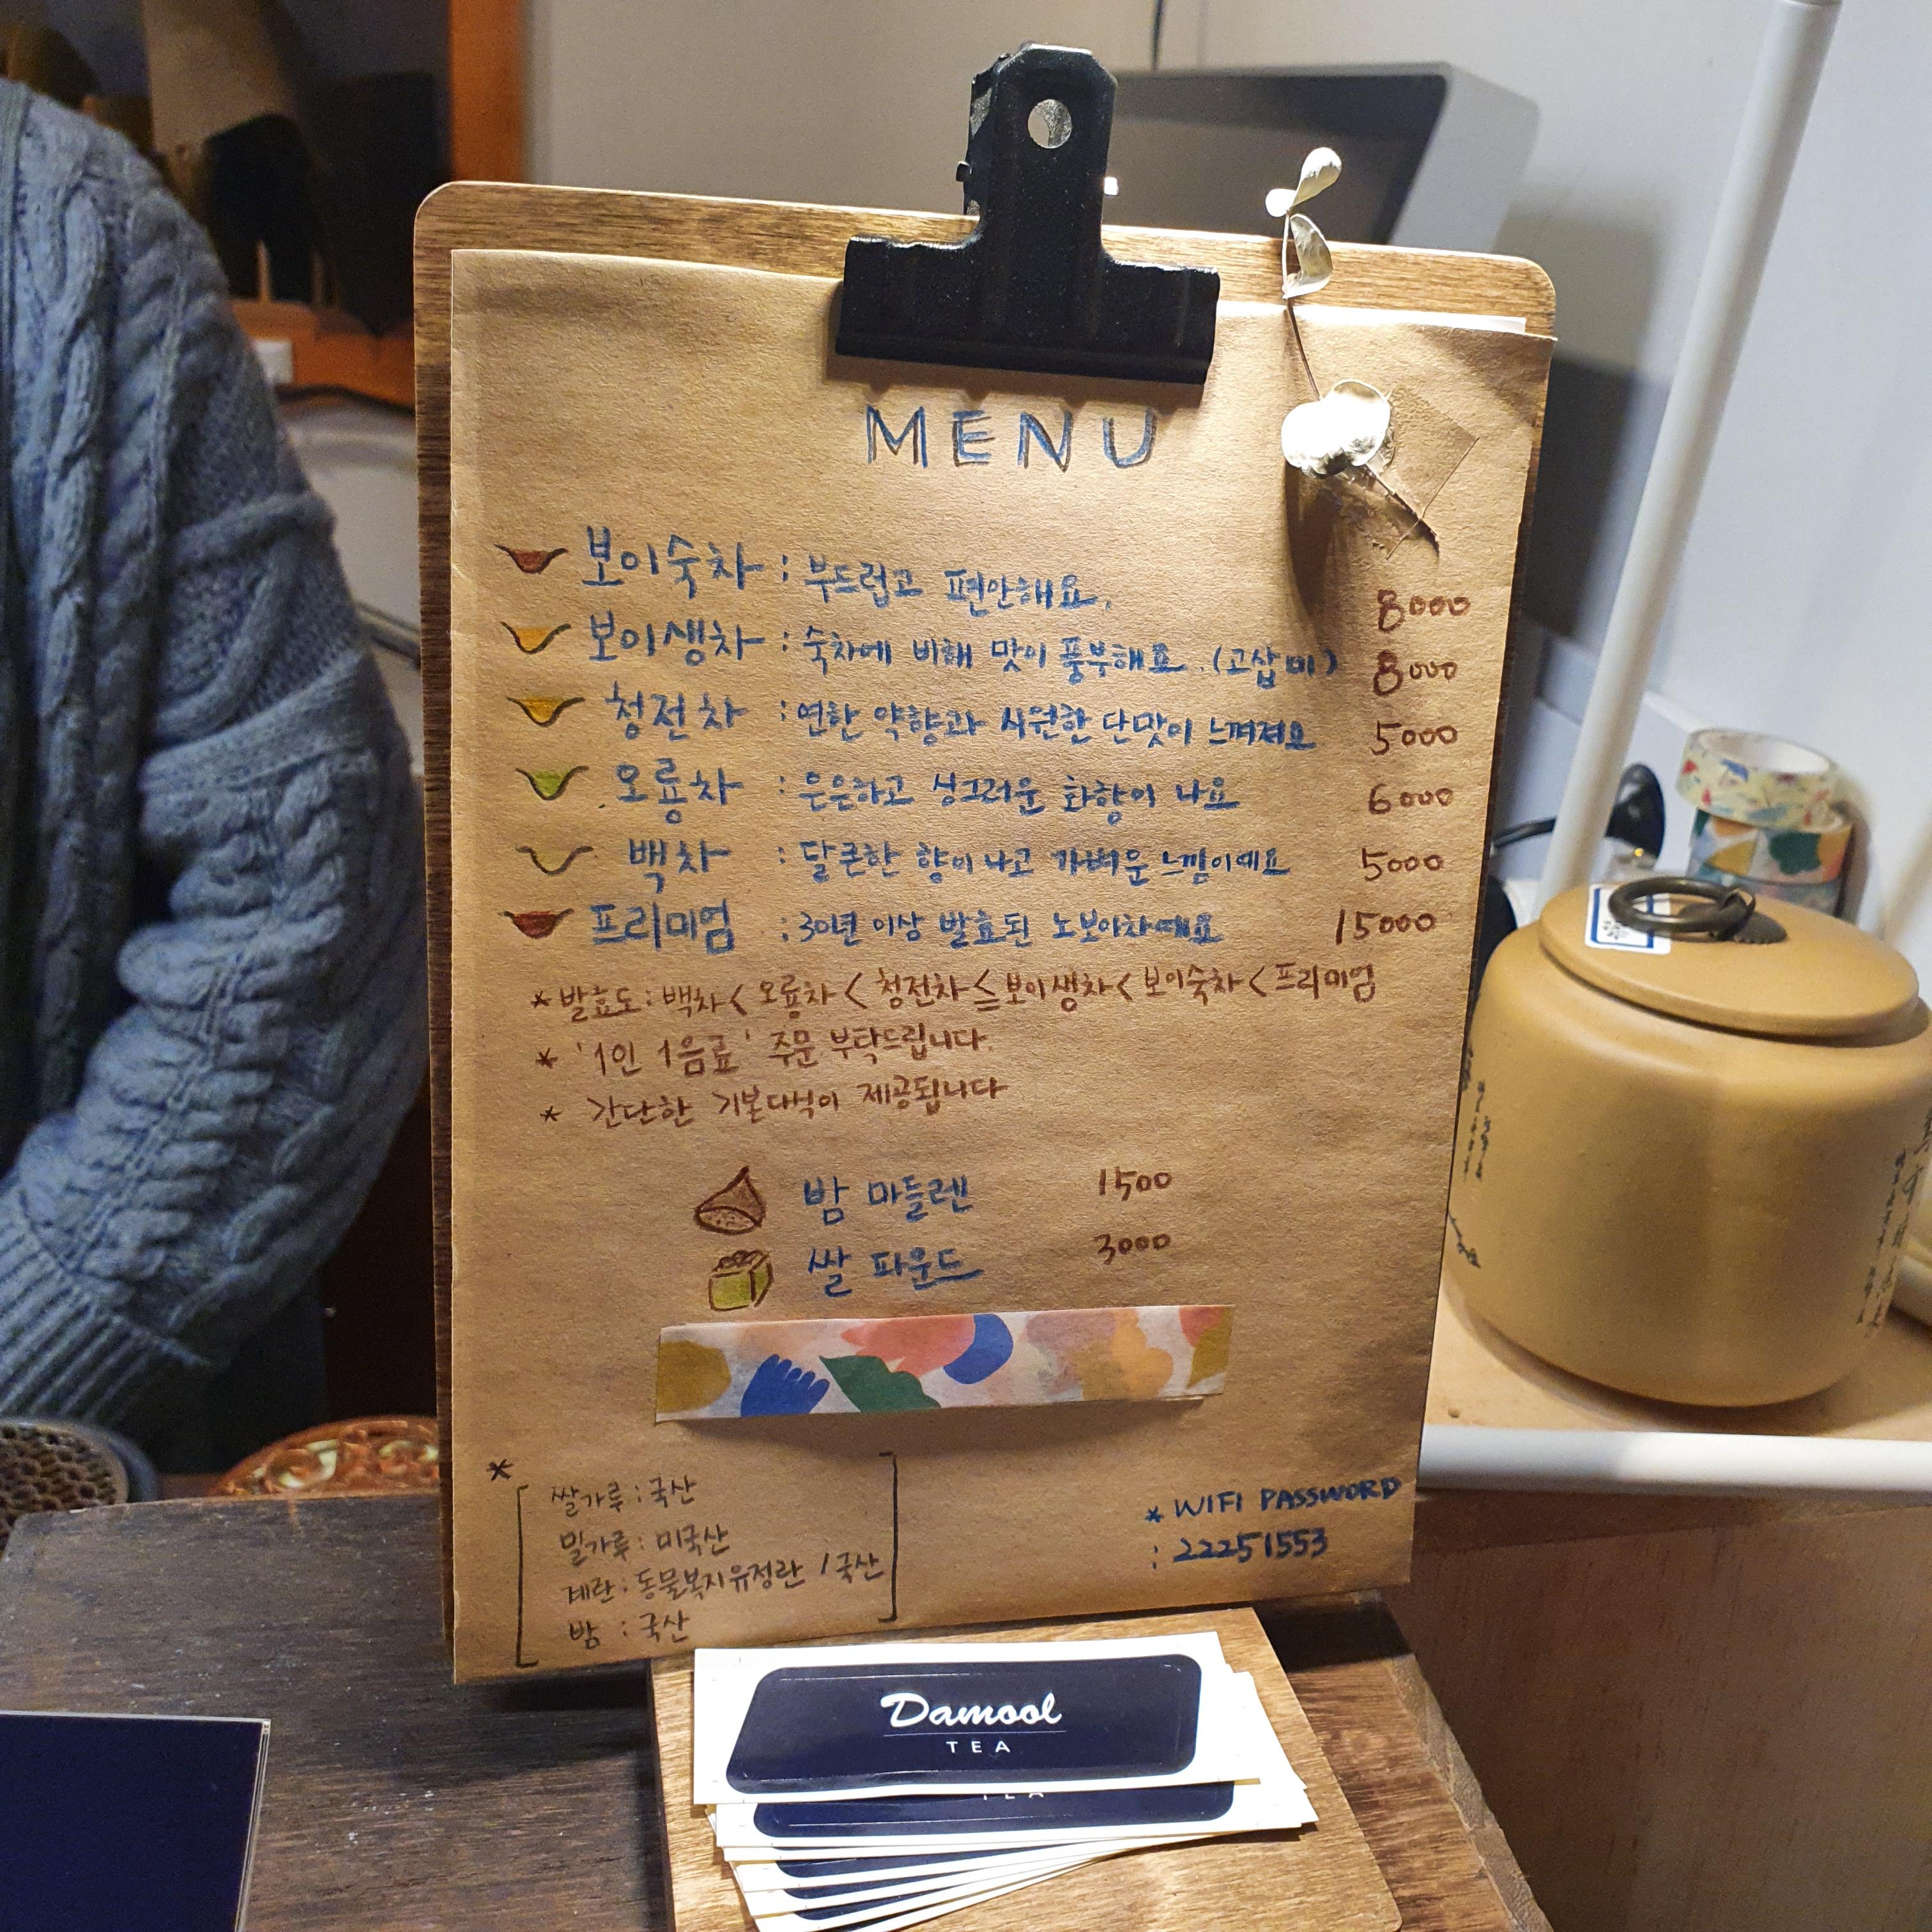 MENU
보이숙차 : 부드럽고 편안해요. 8000
보이생차 : 숙차에 비해 맛이 풍부해요. (고삽미) 8000
청전차 : 연한 약향과 시원한 단맛이 느껴져요 5000
오룡차 : 은은하고 싱그러운 화향이 나요 6000
백차 : 달큰한 향이 나고 가벼운 느낌이에요 5000
프리미엄 : 30년 이상 발효된 노보이차예요 15000
*발효도 : 백차 < 오룡차 < 청전차 ≤ 보이생차 < 보이숙차 < 프리미엄
* '1인 1음료' 주문 부탁드립니다.
* 간단한 기본다식이 제공됩니다
밤 마들렌 1500
쌀 파운드 3000
*
쌀가루 : 국산
밀가루 : 미국산
계란 : 동물복지유정란 / 국산
밤 : 국산
* WIFI PASSWORD
: 22251553
Damool
TEA
TEA